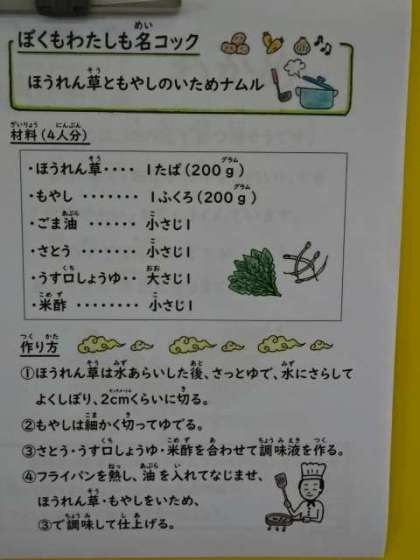 ぼくもわたしも名コック
ほうれん草ともやしのいためナムル
材料（4人分）
・ほうれん草・・・・ 1たば（200g）
・もやし ・・・・・・・ 1ふくろ（200g）
・ごま油 ・・・・・・ 小さじ1
・さとう ・・・・・・・ 小さじ1
・うす口しょうゆ・・ 大さじ1
・米酢 ・・・・・・・・ 小さじ1
作り方
①ほうれん草は水あらいした後、さっとゆで、水にさらして
よくしぼり、2cmくらいに切る。
②もやしは細かく切ってゆでる。
③さとう・うす口しょうゆ・米酢を合わせて調味液を作る。
④フライパンを熱し、油を入れてなじませ、
ほうれん草・もやしをいため、
③で調味して仕上げる。